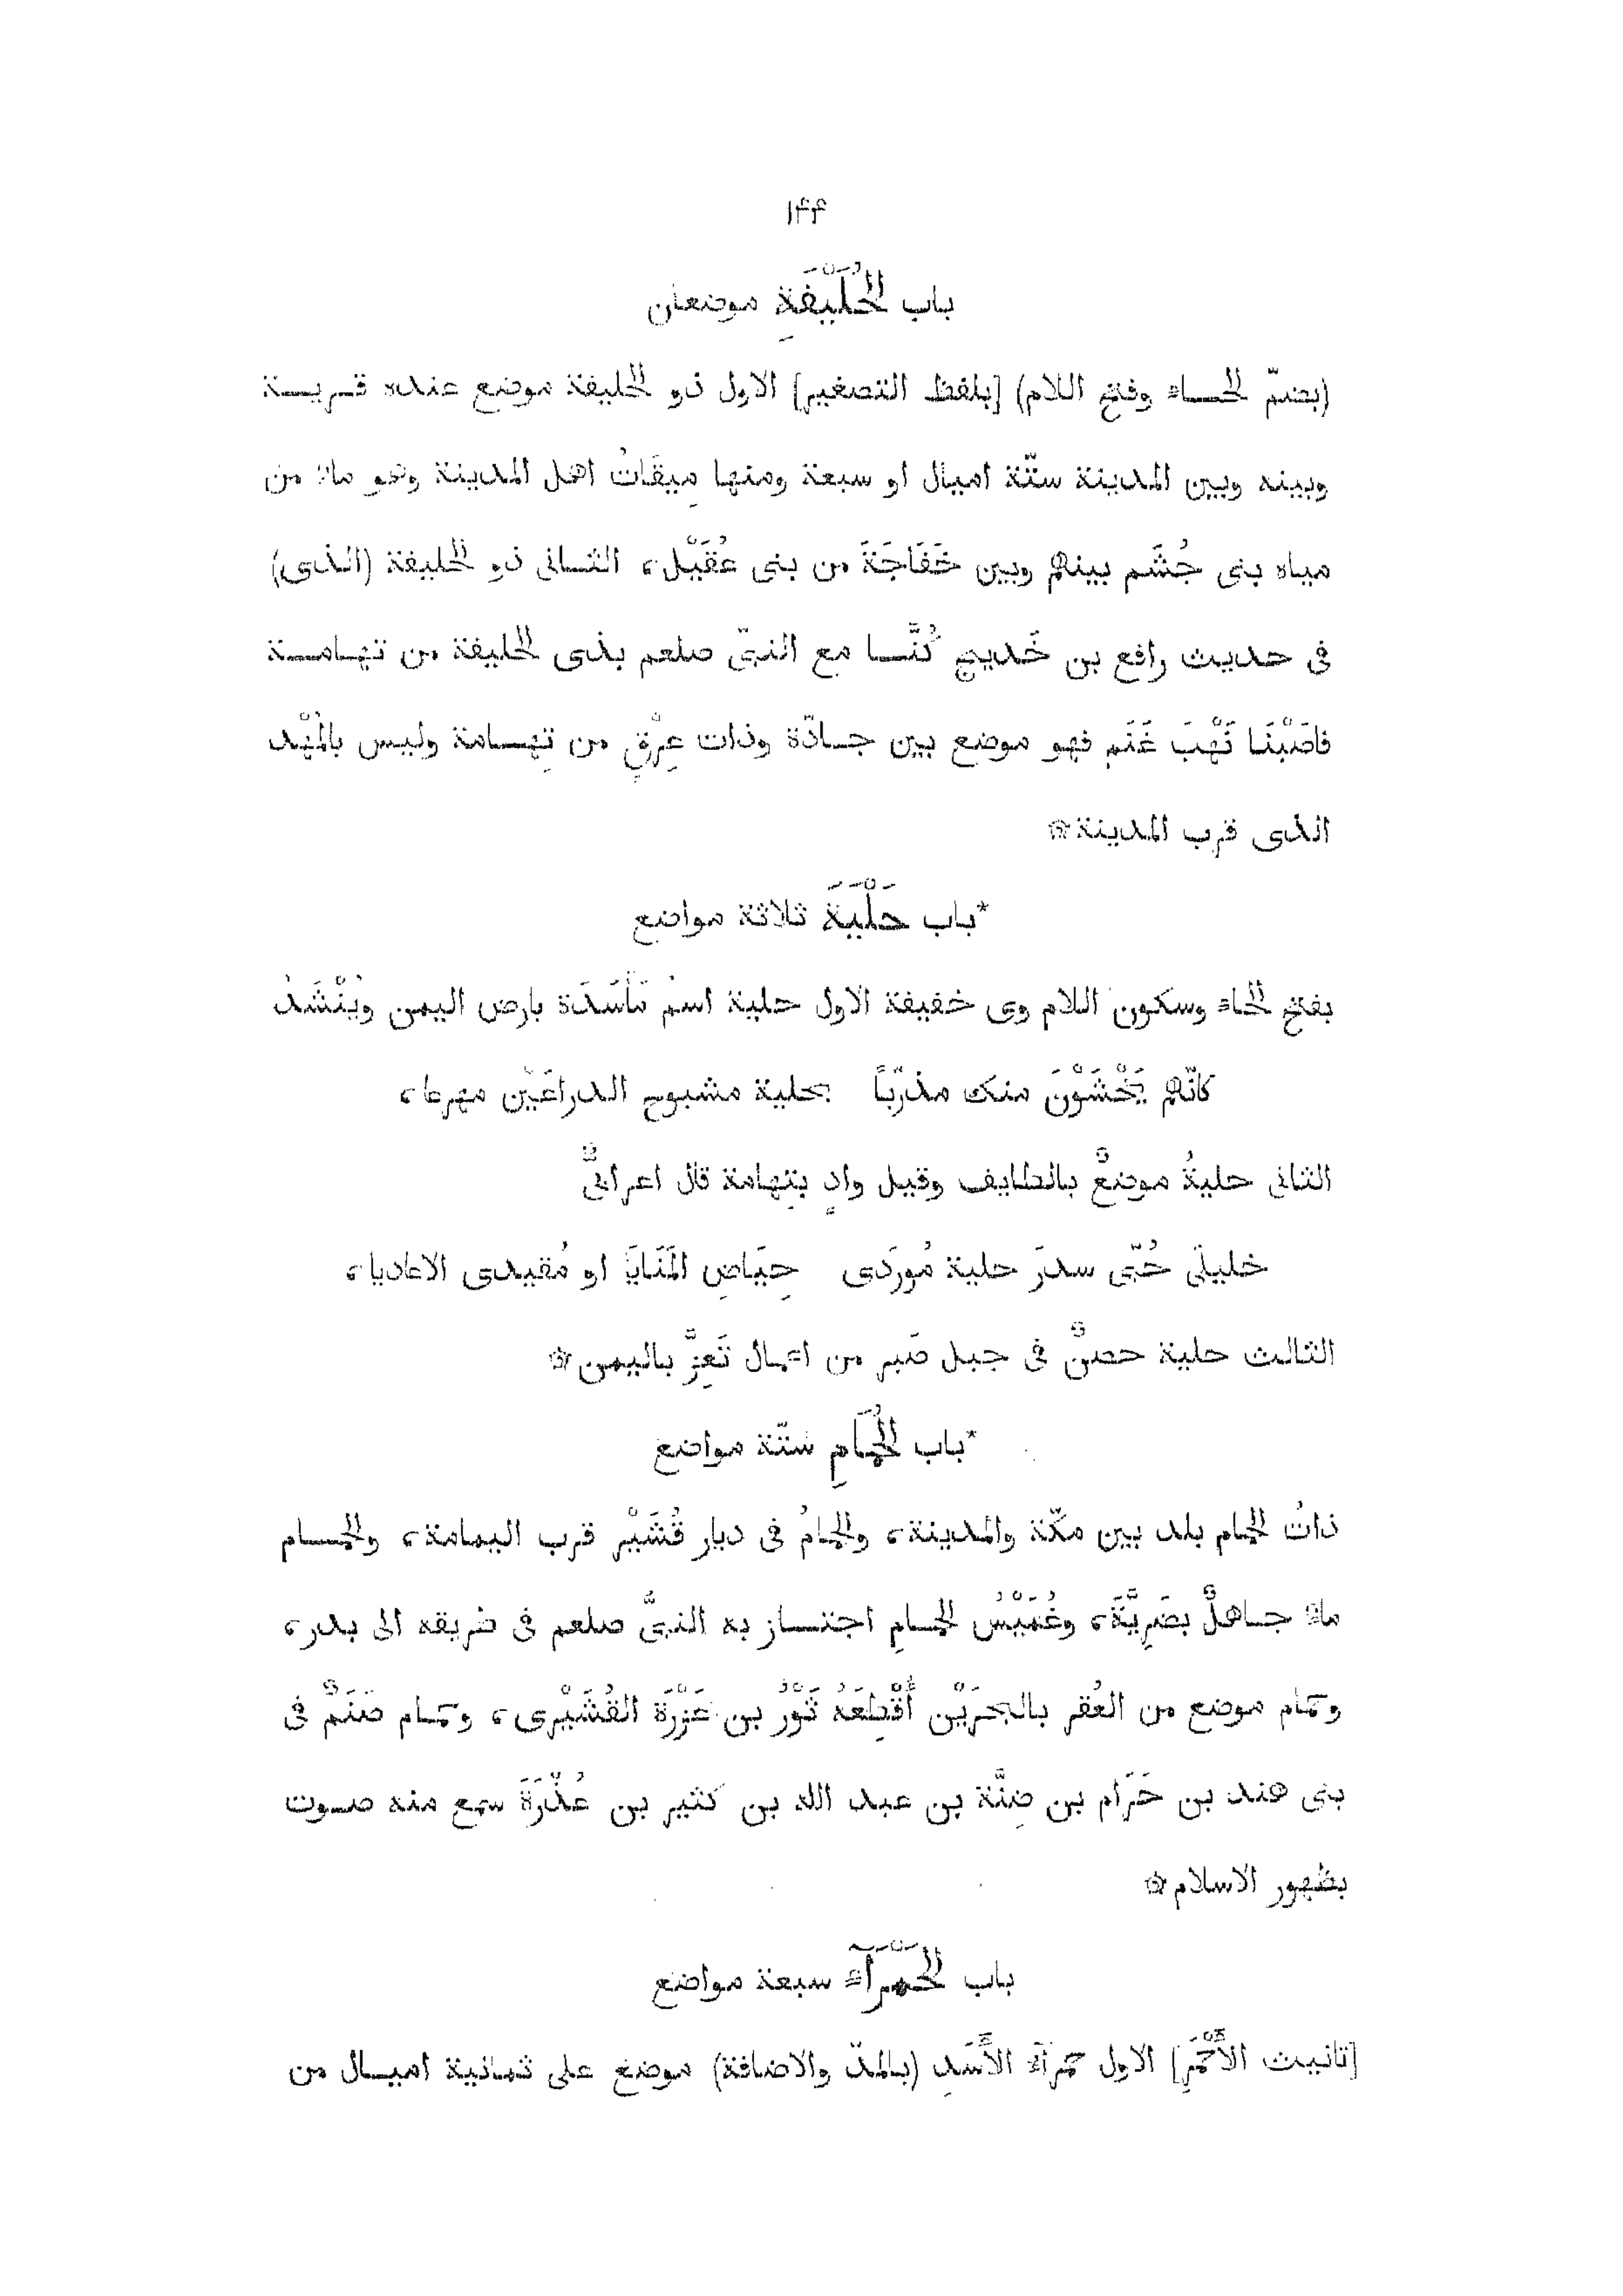 ۱۴۴
باب الْحُلَيْفَةِ موضعان
(بضمّ الحاء وفتح اللام) [بلفظ التصغير] الاول ذو الحليفة موضع عنده قرية
وبينه وبين المدينة ستّة اميال او سبعة ومنها مِيقَاتُ اهل المدينة وهو ماء من
مياه بنى جُشَم بينهم وبين خَفَاجَةَ من بنى عُقَيْل، الثانى ذو الحليفة (الذى)
فى حديث رافع بن خَديج كُنَّا مع النبىّ صلعم بذى الحليفة من تهامة
فاصَبْنَا نَهْبَ غَنَم فهو موضع بين جادّة وذات عِرْقٍ من تِهامة وليس بالمُهْد
الذى قرب المدينة۞
*باب حَلْيَةَ ثلاثة مواضع
بفتح الحاء وسكون اللام وى خفيفة الاول حلية اسمُ مَأْسَدَة بارض اليمن ويُنْشَدُ
كانّهم يَخْشَوْنَ منك مذرّبًا بحلية مشبوح الدراعَيْن مهرعا،
الثانى حليةُ موضعٌ بالطايف وقيل وادٍ بِتهامة قال اعرابىٌّ
خليلَى حُبّى سدرَ حلية مُورَدى حِيَاضِ المَنَايَا او مُقيدى الاعاديا،
الثالث حلية حصنٌ فى جبل صَبر من اعمال تَعِزَّ باليمن۞
*باب الْحُمَامِ ستّة مواضع
ذاتُ الحمام بلد بين مكّة والمدينة، والحمامُ فى ديار قُشَيْر قرب اليمامة، والحمام
ماء جاهلٌ بضَرِيَّةَ، وغُمَيْسُ الحمامِ اجتاز به النبىُّ صلعم فى طريقه الى بدر،
وحمام موضع من العُقر بالبحرَيْن أُقْطِعَهُ ثَوْرُ بن عَزْرَة القُشَيْرى، وحمام صَنَمٌ فى
بنى هند بن حَرَام بن ضِنَّة بن عبد الله بن كثير بن عُذْرَةَ سمع منه صوت
بظهور الاسلام۞
باب الْحَمْرَآءِ سبعة مواضع
[تانيث الأَحْمَرِ] الاول حمرآء الأَسَدِ (بالمدّ والاضافة) موضع على ثمانية اميال من